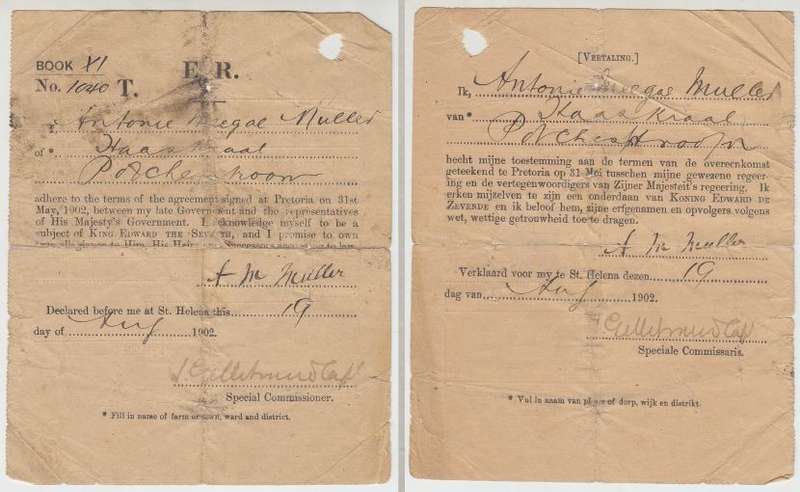 BOOK XI
No. 1040 T. E. R.
I, Antonie Muller
of * Haaskraal
Potchefstroom
adhere to the terms of the agreement signed at Pretoria on 31st
May, 1902, between my late Government and the representatives
of His Majesty's Government. I acknowledge myself to be a
subject of KING EDWARD THE SEVENTH, and I promise to own
true allegiance to Him, His Heirs and Successors according to law.
A M Muller
Declared before me at St. Helena this 19
day of Aug 1902.
Special Commissioner.
* Fill in name of farm or town, ward and district.
[VERTALING.]
Ik, Antonie Muller
van * Haaskraal
Potchefstroom
hecht mijne toestemming aan de termen van de overeenkomst
geteekend te Pretoria op 31 Mei tusschen mijne gewezene regeer-
ing en de vertegenwoordigers van Zijner Majesteit's regeering. Ik
erken mijzelven te zijn een onderdaan van KONING EDWARD DE
ZEVENDE en ik beloof hem, zijne erfgenamen en opvolgers volgens
wet, wettige getrouwheid toe te dragen.
A M Muller
Verklaard voor my te St. Helena dezen 19
dag van Aug 1902.
Speciale Commissaris.
* Vul in naam van plaats of dorp, wijk en distrikt.